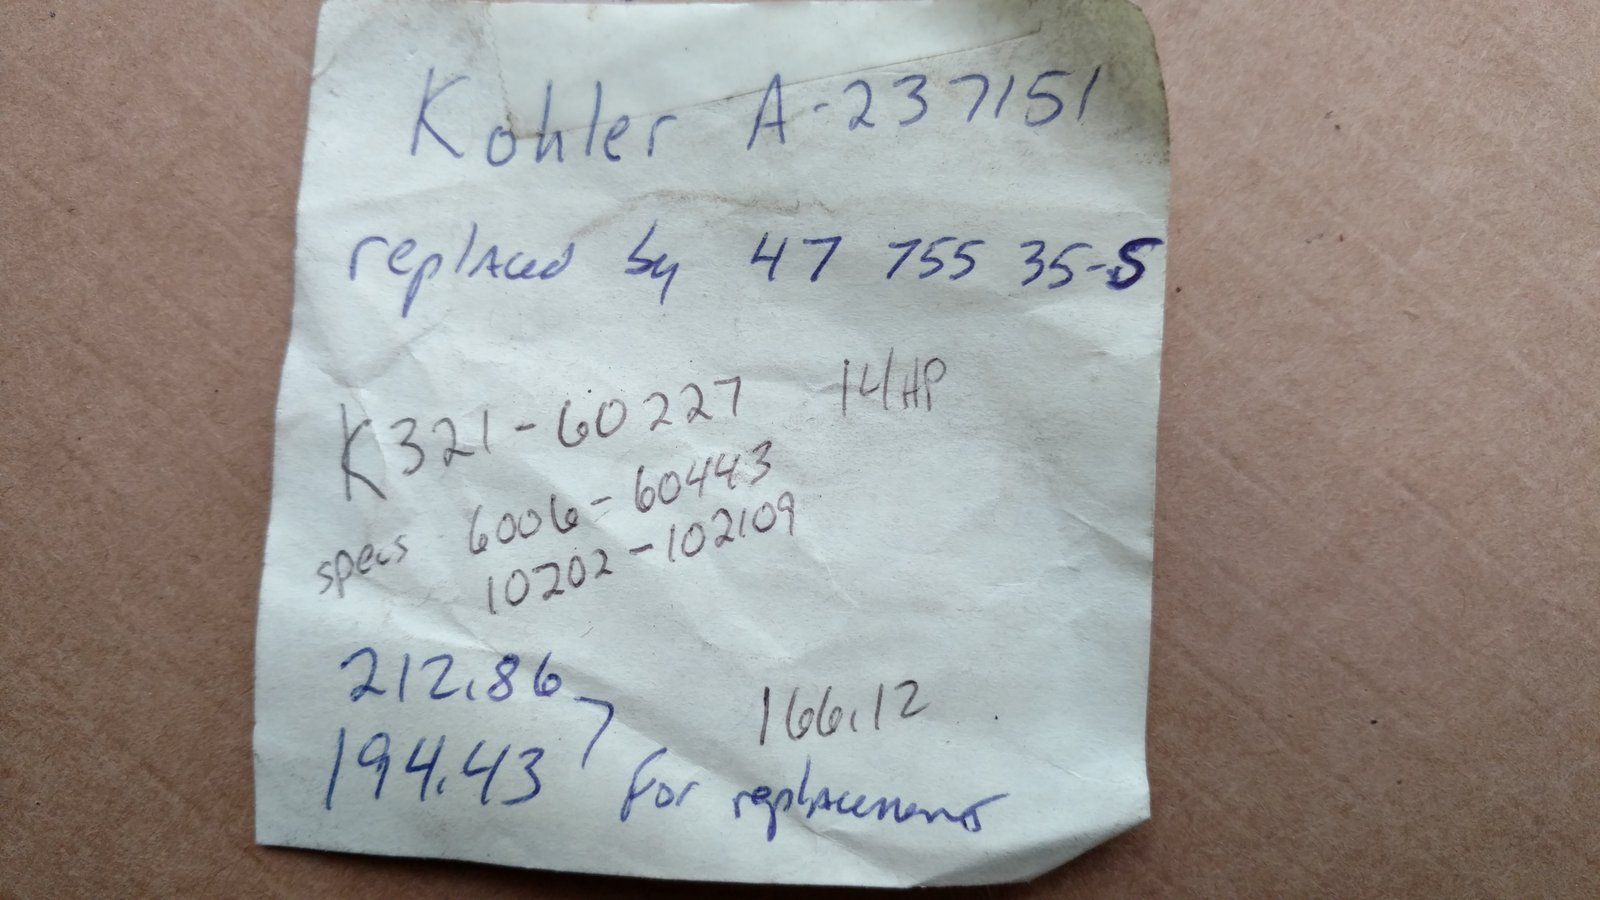 Kohler A-237151
replaced by 47 755 35-S
K321-60227 14HP
specs 6006-60443
10202-102109
212.86
166.12
194.43 for replacement